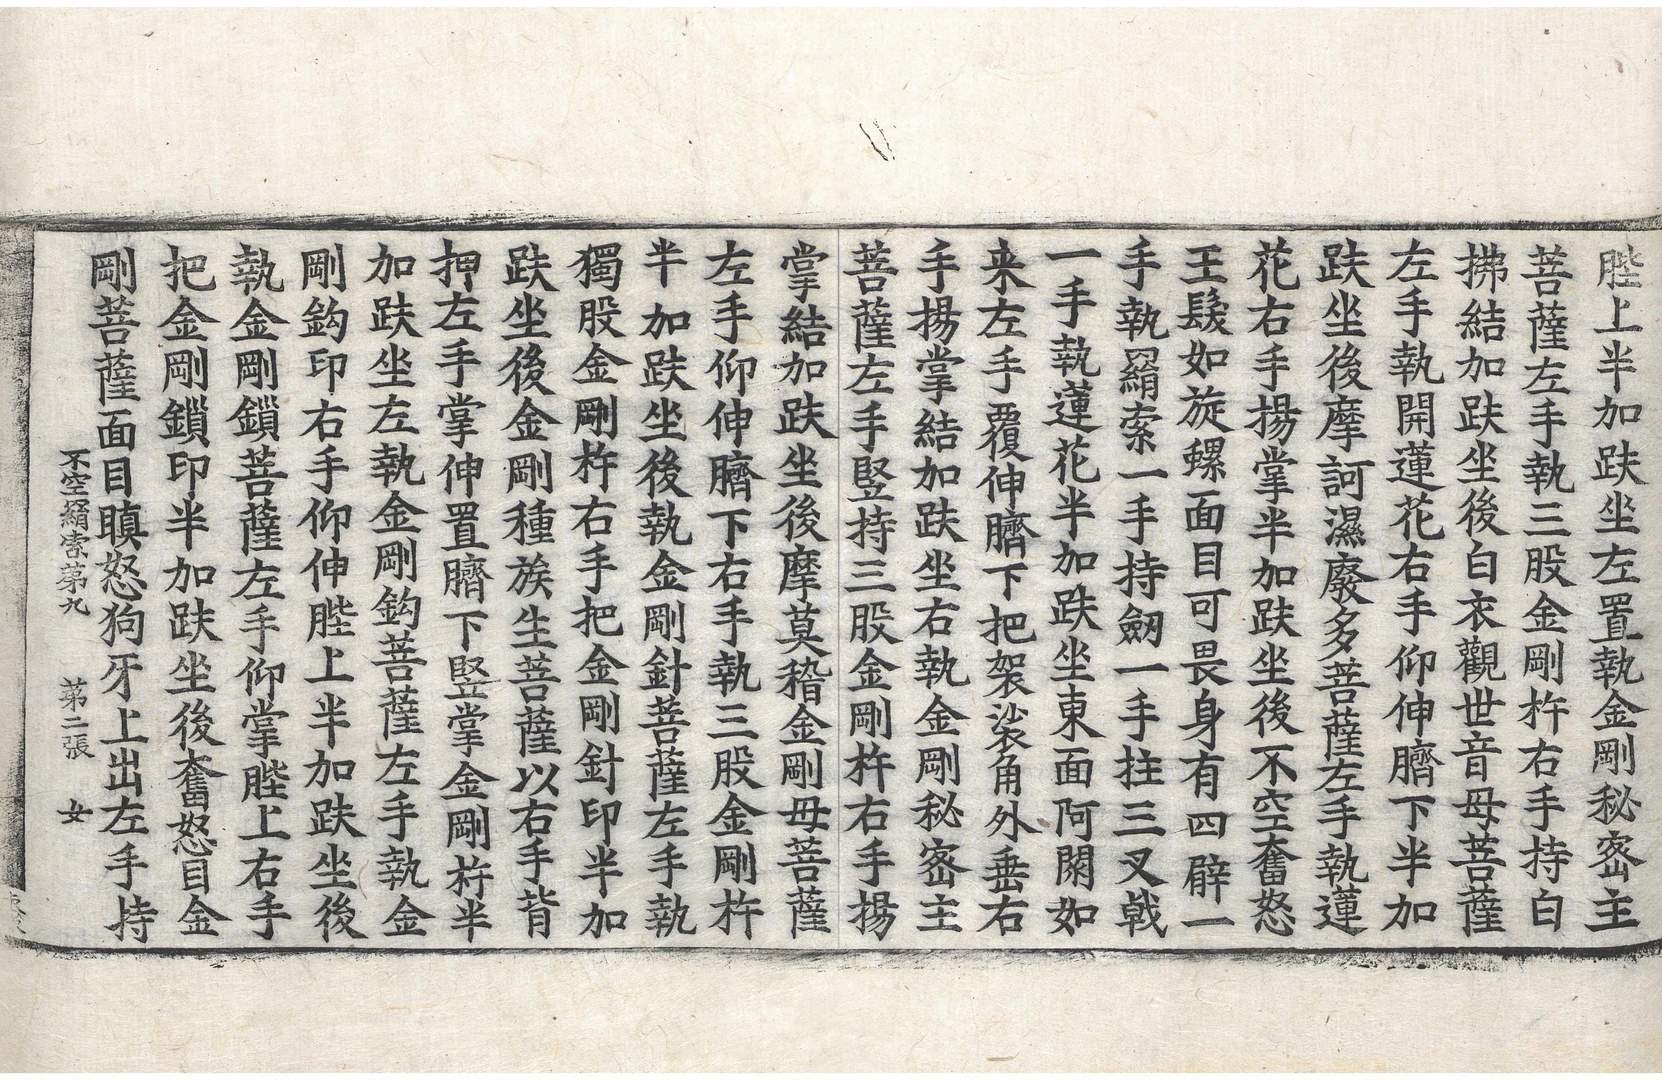 䏶上半加趺坐左置執金剛秘密主
菩薩左手執三股金剛杵右手持白
拂結加趺坐後白衣觀世音母菩薩
左手執開蓮花右手仰伸臍下半加
趺坐後摩訶濕廢多菩薩左手執蓮
花右手揚掌半加趺坐後不空奮怒
王髮如旋螺面目可畏身有四臂一
手執羂索一手持劒一手拄三叉戟
一手執蓮花半加趺坐東面阿閦如
来左手覆伸臍下把袈裟角外垂右
手揚掌結加趺坐右執金剛秘密主
菩薩左手竪持三股金剛杵右手揚
掌結加趺坐後摩莫稽金剛母菩薩
左手仰伸臍下右手執三股金剛杵
半加趺坐後執金剛針菩薩左手執
獨股金剛杵右手把金剛針印半加
趺坐後金剛種族生菩薩以右手背
押左手掌伸置臍下竪掌金剛杵半
加趺坐左執金剛鈎菩薩左手執金
剛鈎印右手仰伸䏶上半加趺坐後
執金剛鎖菩薩左手仰掌䏶上右手
把金剛鎖印半加趺坐後奮怒目金
剛菩薩面目瞋怒狗牙上出左手持
不空羂索第九 第二張 女